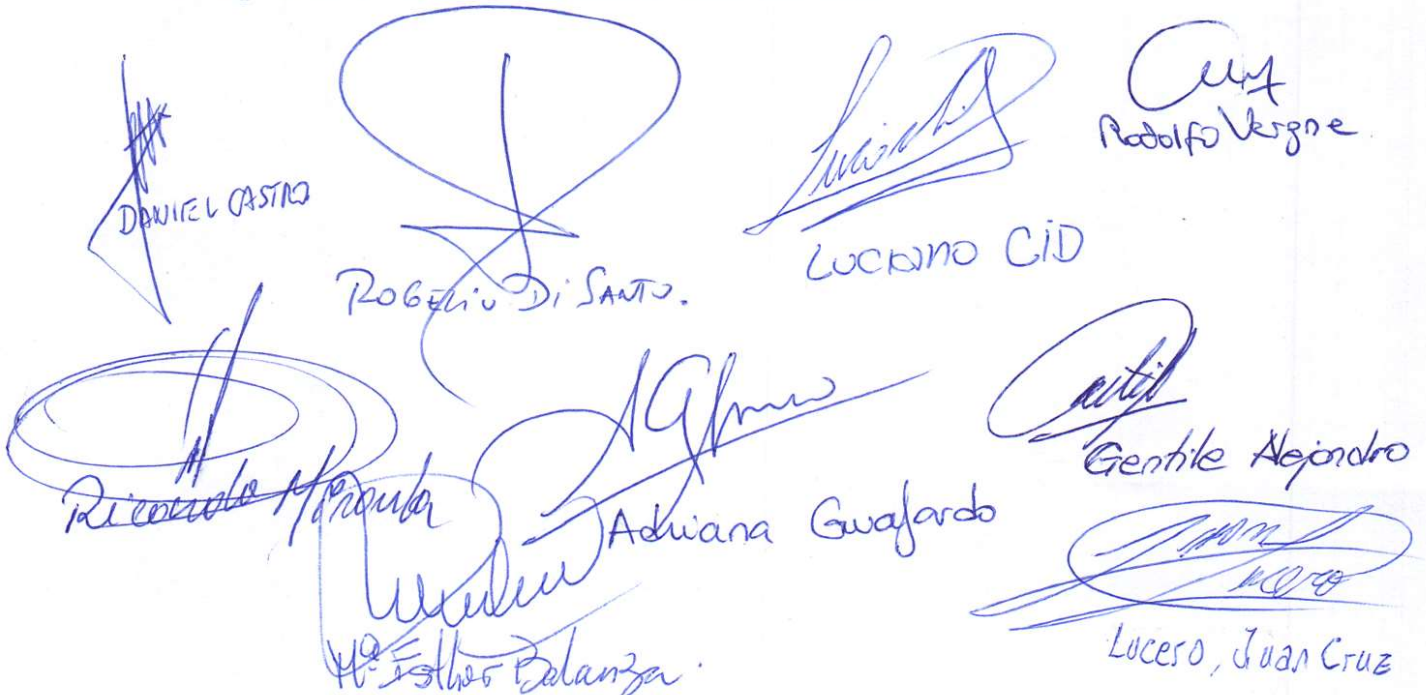 DANIEL CASTRO
ROGELIO Di SANTO.
LUCIANO CiD
Rodolfo Vergne
Ricardo Miranda
Adriana Guajardo
Gentile Alejandro
Mª Esther Balanza.
Juan Lucero
Lucero, Juan Cruz